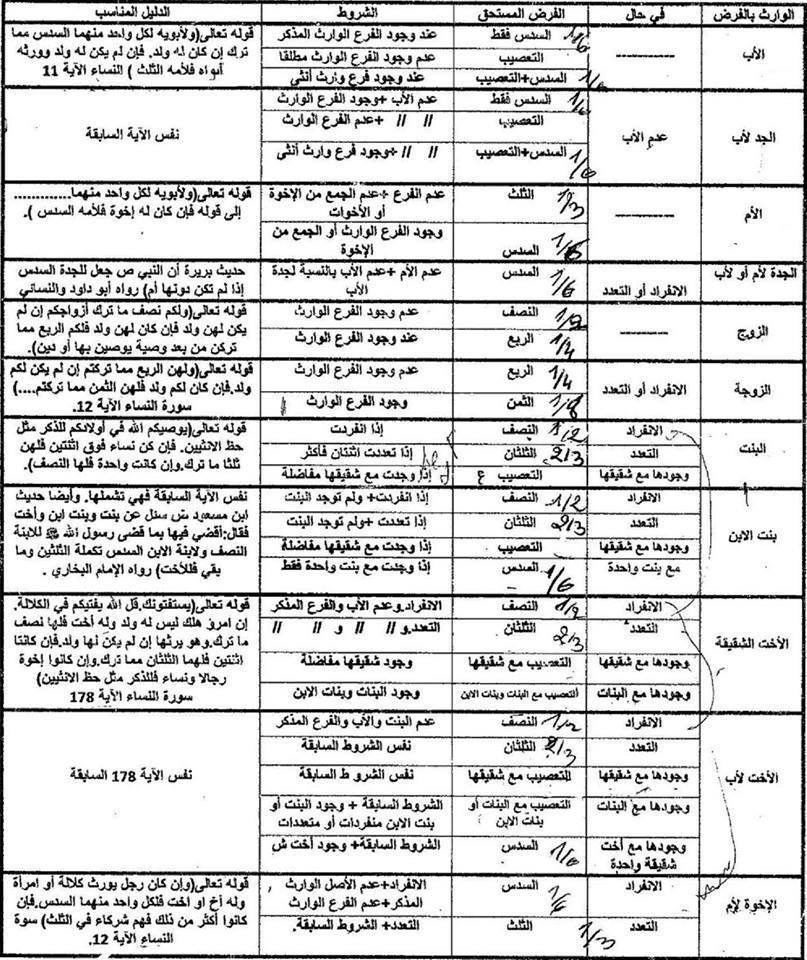 الوارث بالفرض | في حال | الفرض المستحق | الشروط | الدليل المناسب
الأب | ---------- | السدس فقط 1/6 | عند وجود الفرع الوارث المذكر | قوله تعالى(ولأبويه لكل واحد منهما السدس مما
التعصيب | عدم وجود الفرع الوارث مطلقا | ترك إن كان له ولد. فإن لم يكن له ولد وورثه
السدس+التعصيب 1/6 | عند وجود فرع وارث أنثى | أبواه فلأمه الثلث ) النساء الآية 11
الجد لأب | عدم الأب | السدس فقط 1/6 | عدم الأب +وجود الفرع الوارث | نفس الآية السابقة
التعصيب | // // +عدم الفرع الوارث
السدس+التعصيب 1/6 | // // +وجود فرع وارث أنثى
الأم | ---------- | الثلث 1/3 | عدم الفرع +عدم الجمع من الإخوة | قوله تعالى(ولأبويه لكل واحد منهما.............
أو الأخوات | إلى قوله فإن كان له إخوة فلأمه السدس ).
السدس 1/6 | وجود الفرع الوارث أو الجمع من
الإخوة
الجدة لأم أو لأب | الانفراد أو التعدد | السدس 1/6 | عدم الأم +عدم الأب بالنسبة لجدة | حديث بريرة أن النبي ص جعل للجدة السدس
الأب | إذا لم تكن دونها أم) رواه أبو داود والنسائي
الزوج | ---------- | النصف 1/2 | عدم وجود الفرع الوارث | قوله تعالى(ولكم نصف ما ترك أزواجكم إن لم
الربع 1/4 | عند وجود الفرع الوارث | يكن لهن ولد فإن كان لهن ولد فلكم الربع مما
تركن من بعد وصية يوصين بها أو دين).
الزوجة | الانفراد أو التعدد | الربع 1/4 | عدم وجود الفرع الوارث | قوله تعالى(ولهن الربع مما تركتم إن لم يكن لكم
ولد.فإن كان لكم ولد فلهن الثمن مما تركتم....)
الثمن 1/8 | وجود الفرع الوارث | سورة النساء الآية 12.
البنت | الانفراد | النصف 1/2 | إذا انفردت | قوله تعالى(يوصيكم الله في أولادكم للذكر مثل
التعدد | الثلثان 2/3 | إذا تعددت اثنتان فأكثر | حظ الانثيين. فإن كن نساء فوق اثنتين فلهن
وجودها مع شقيقها | التعصيب ع | إذا وجدت مع شقيقها مفاضلة | ثلثا ما ترك.وإن كانت واحدة فلها النصف).
بنت الابن | الانفراد | النصف 1/2 | إذا انفردت+ ولم توجد البنت | نفس الآية السابقة فهي تشملها. وأيضا حديث
التعدد | الثلثان 2/3 | إذا تعددت +ولم توجد البنت | ابن مسعود سئل عن بنت وبنت ابن وأخت
وجودها مع شقيقها | التعصيب | إذا وجدت مع شقيقها مفاضلة | فقال:أقضي فيها بما قضى رسول الله ﷺ للابنة
مع بنت واحدة | السدس 1/6 | إذا وجدت مع بنت واحدة فقط | النصف ولابنة الابن السدس تكملة الثلثين وما
بقي فللأخت) رواه الإمام البخاري .
الأخت الشقيقة | الانفراد | النصف 1/2 | الانفراد.وعدم الأب والفرع المذكر | قوله تعالى(يستفتونك.قل الله يفتيكم في الكلالة.
التعدد | الثلثان 2/3 | التعدد.و // // و // // | إن امرؤ هلك ليس له ولد وله أخت فلها نصف
وجودها مع شقيقها | التعصيب مع شقيقها | وجود شقيقها مفاضلة | ما ترك.وهو يرثها إن لم يكن لها ولد.فإن كانتا
اثنتين فلهما الثلثان مما ترك.وإن كانوا إخوة
وجودها مع البنات | التعصيب مع البنات وبنات الابن | وجود البنات وبنات الابن | رجالا ونساء فللذكر مثل حظ الانثيين)
سورة النساء الآية 178
الأخت لأب | الانفراد | النصف 1/2 | عدم البنت والأب والفرع المذكر | نفس الآية 178 السابقة
التعدد | الثلثان 2/3 | نفس الشروط السابقة
وجودها مع شقيقها | التعصيب مع شقيقها | نفس الشروط السابقة
وجودها مع البنات | التعصيب مع البنات أو | الشروط السابقة + وجود البنت أو
بنات الابن | بنت الابن منفردات أو متعددات
وجودها مع أخت | السدس 1/6 | الشروط السابقة+ وجود أخت ش
شقيقة واحدة
الإخوة لأم | الانفراد | السدس 1/6 | الانفراد+عدم الأصل الوارث | قوله تعالى(وإن كان رجل يورث كلالة أو امرأة
المذكر+عدم الفرع الوارث | وله أخ او اخت فلكل واحد منهما السدس.فإن
التعدد | الثلث 1/3 | التعدد+ الشروط السابقة. | كانوا أكثر من ذلك فهم شركاء في الثلث) سوة
النساء الآية 12.